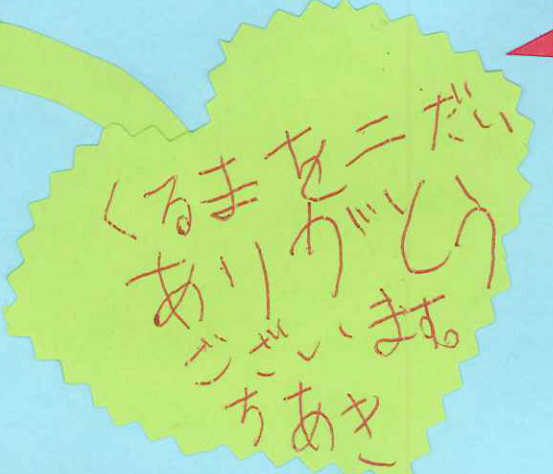 くるまを二だい
ありがとう
ございます。
ちあき